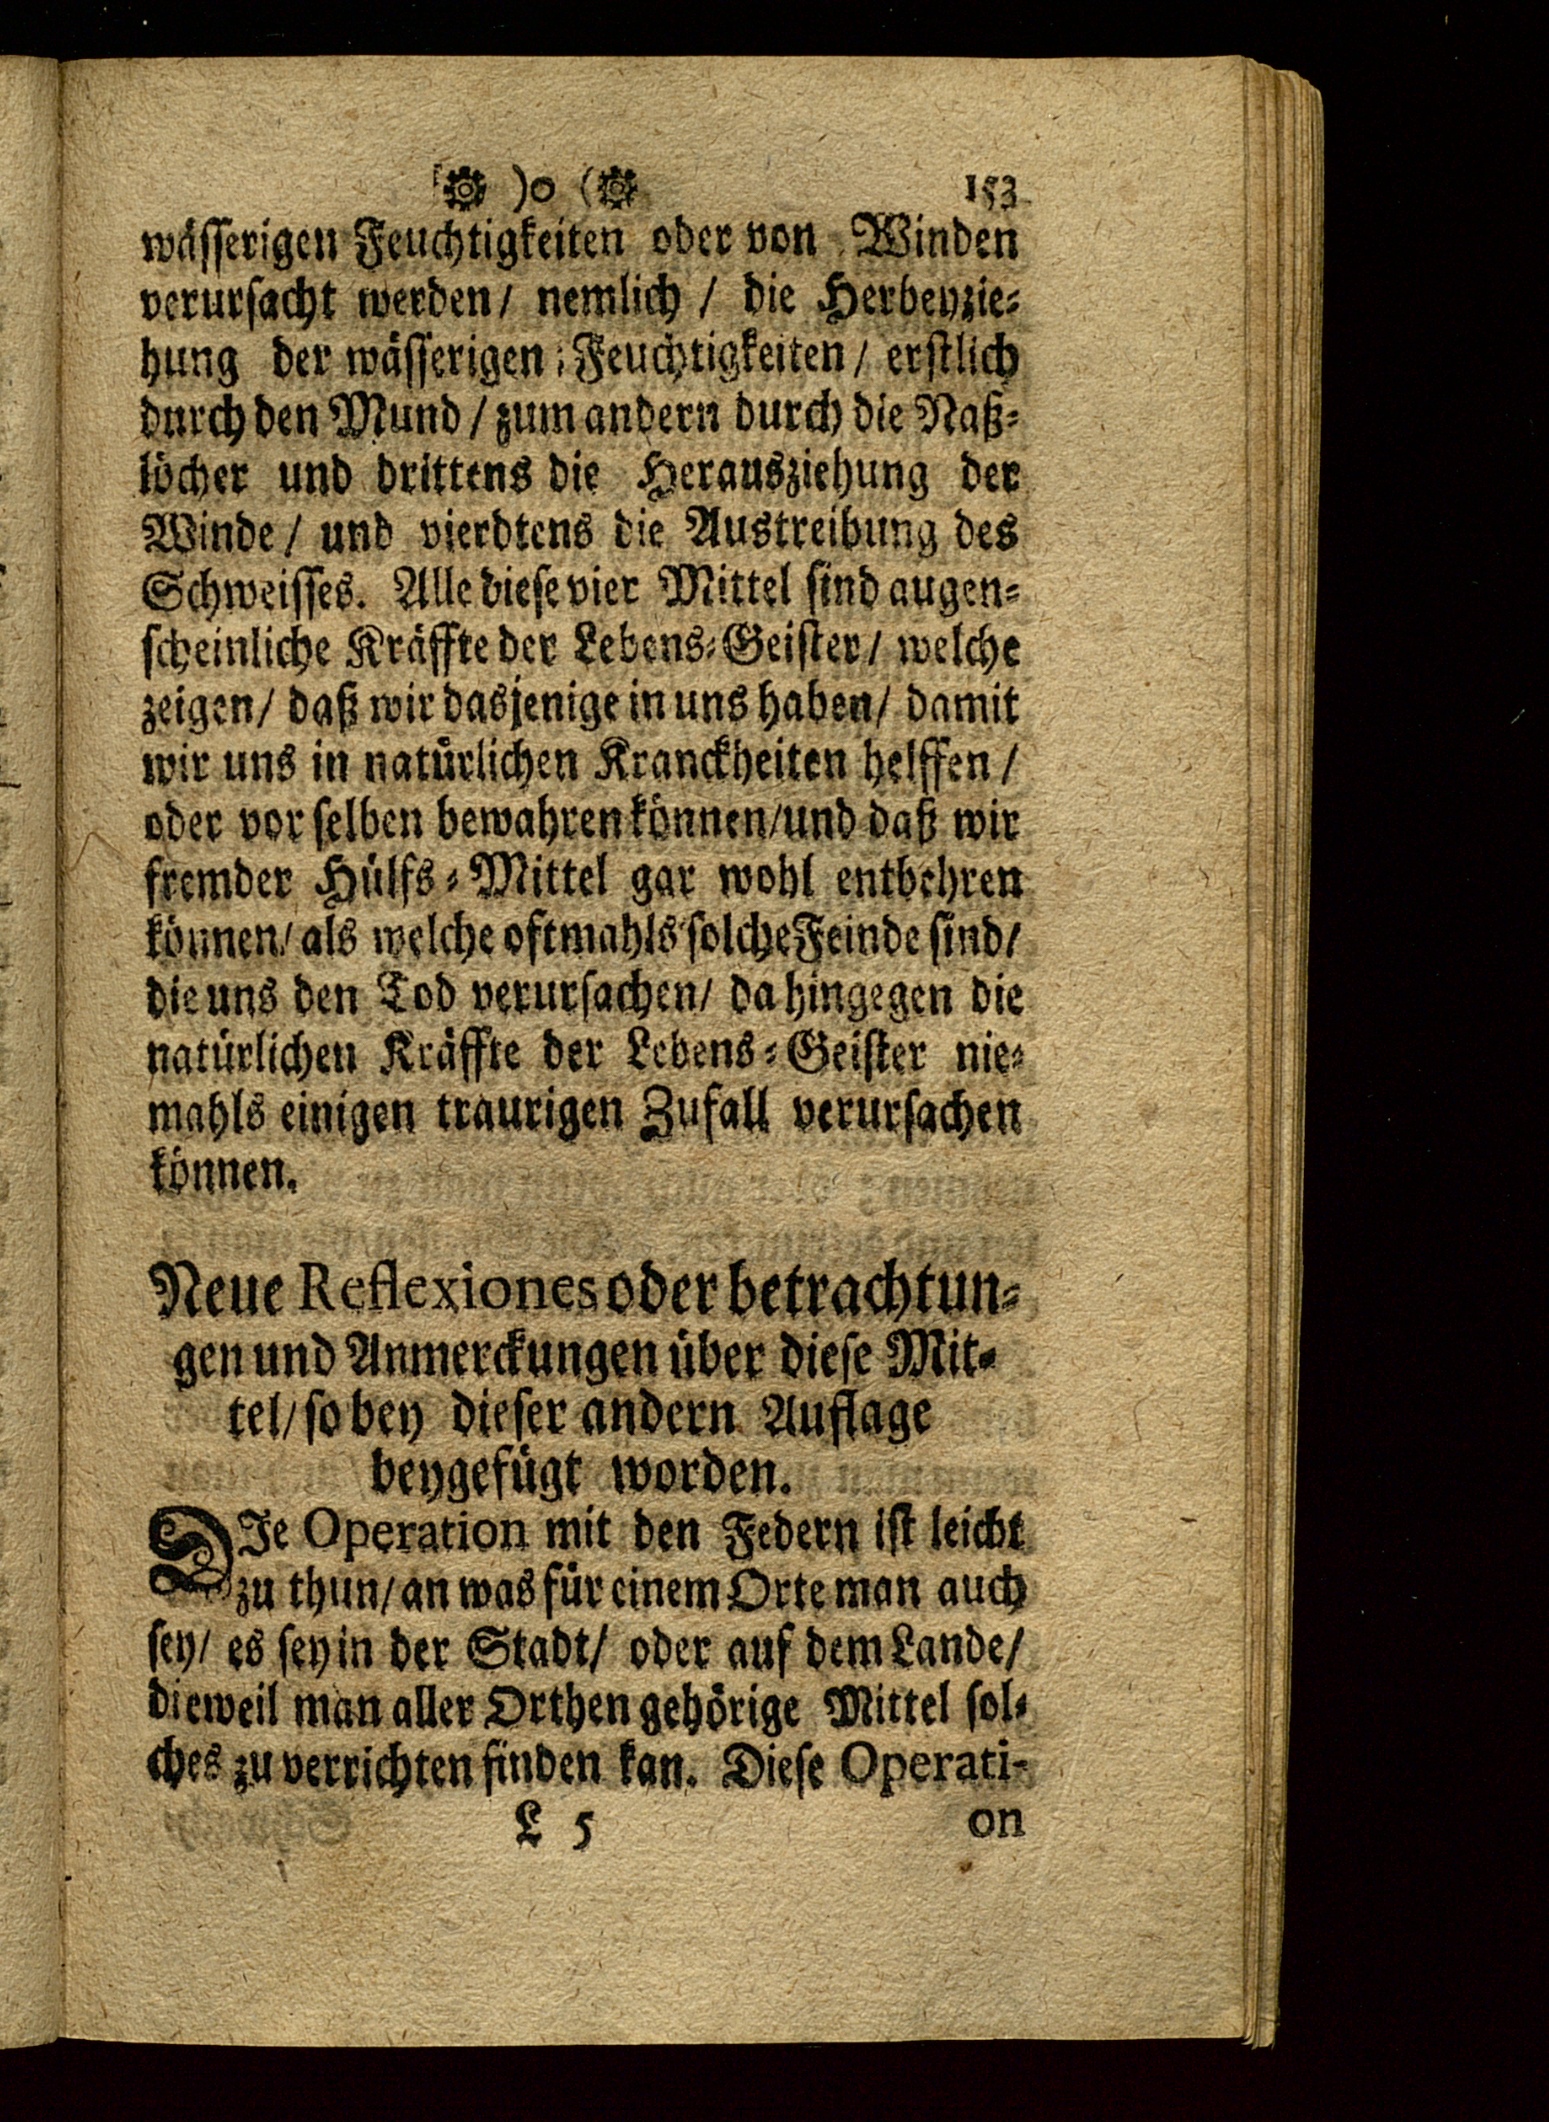 )o( 153
wässerigen Feuchtigkeiten oder von Winden
verursacht werden/ nemlich / die Herbeyzie-
hung der wässerigen Feuchtigkeiten/ erstlich
durch den Mund / zum andern durch die Naß-
löcher und drittens die Herausziehung der
Winde / und vierdtens die Austreibung des
Schweisses. Alle diese vier Mittel sind augen-
scheinliche Kräffte der Lebens-Geister/ welche
zeigen/ daß wir dasjenige in uns haben/ damit
wir uns in natürlichen Kranckheiten helffen /
oder vor selben bewahren können/und daß wir
fremder Hülfs-Mittel gar wohl entbehren
können/ als welche oftmahls solche Feinde sind/
die uns den Tod verursachen/ da hingegen die
natürlichen Kräffte der Lebens-Geister nie-
mahls einigen traurigen Zufall verursachen
können.
Neue Reflexiones oder betrachtun-
gen und Anmerckungen über diese Mit-
tel/ so bey dieser andern Auflage
beygefügt worden.
DIe Operation mit den Federn ist leicht
zu thun/ an was für einem Orte man auch
sey/ es sey in der Stadt/ oder auf dem Lande/
dieweil man aller Orthen gehörige Mittel sol-
ches zu verrichten finden kan. Diese Operati-
L 5 on